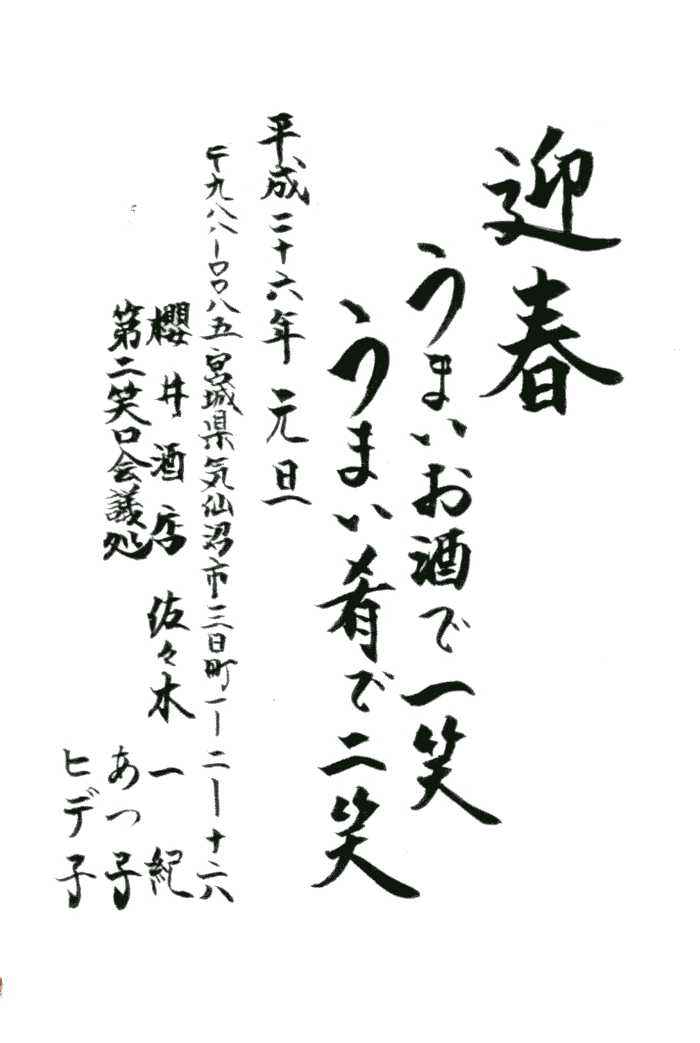 迎春
うまいお酒で一笑
うまい肴で二笑
平成二十六年 元旦
〒九八八ー〇〇八五 宮城県気仙沼市三日町一ー二ー十六
櫻井酒店 佐々木 一紀
第二笑口会議処 あつ子
ヒデ子